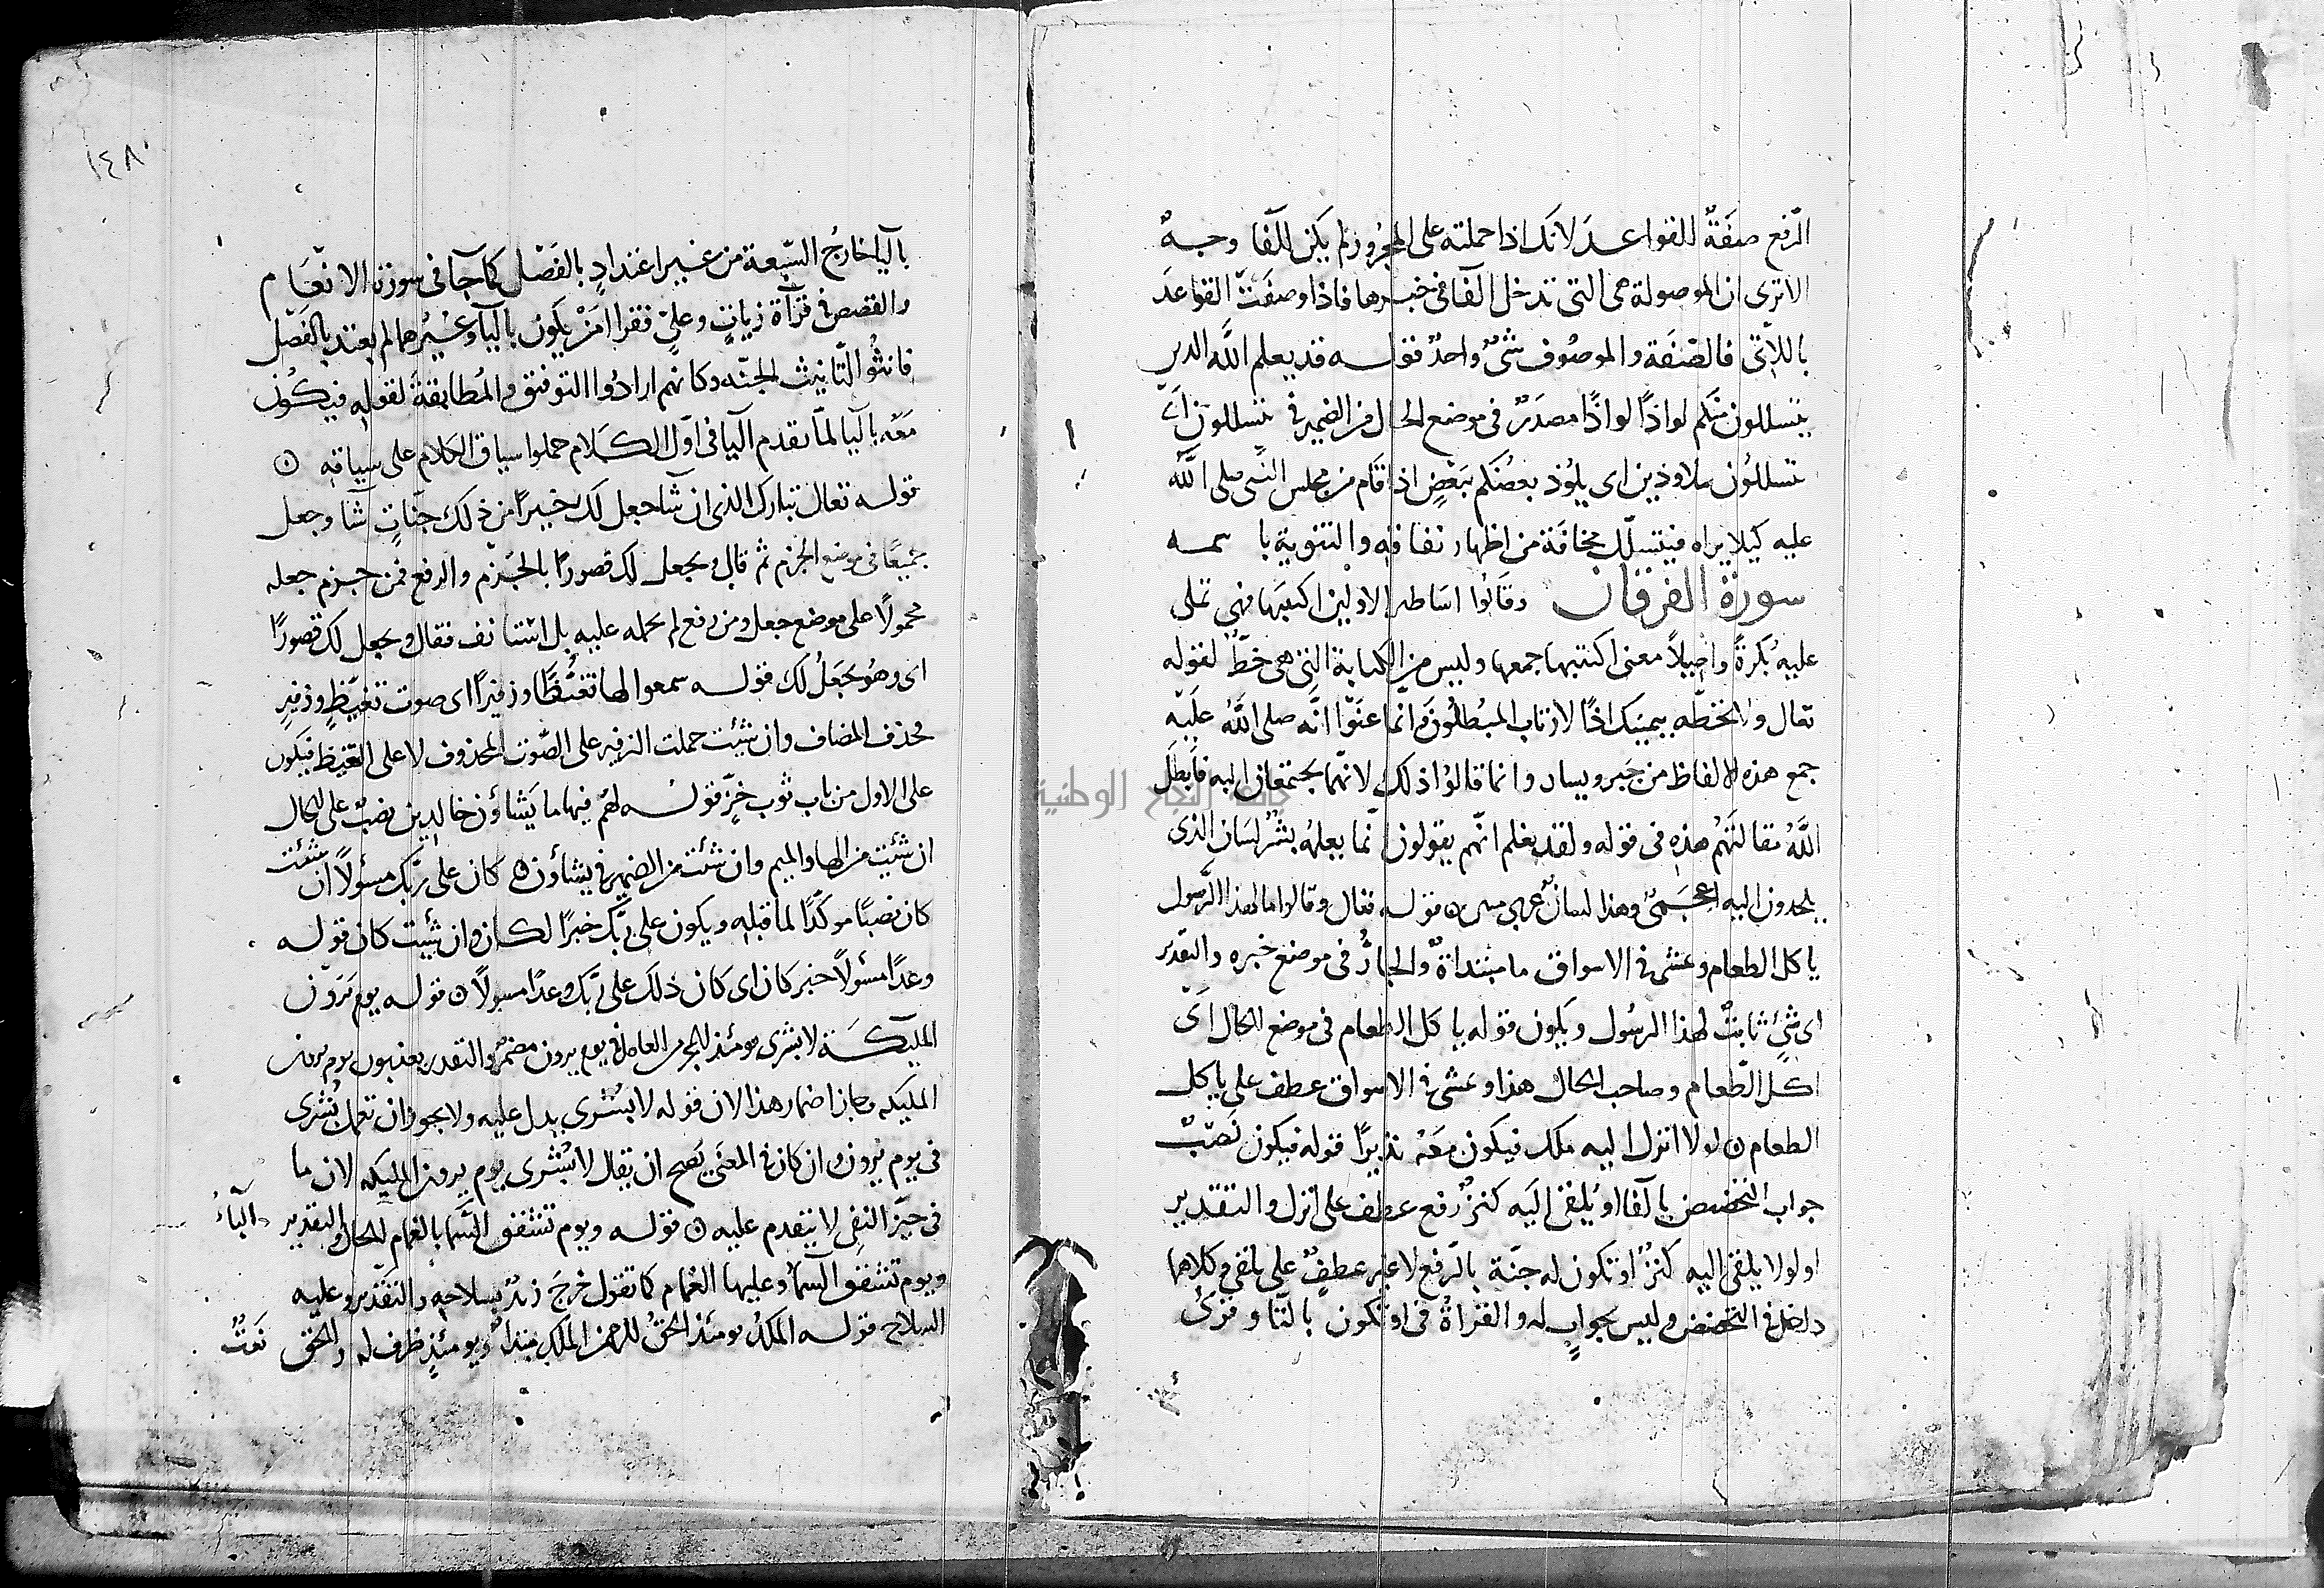 الرفع صفَةٌ للقواعد لانك اذا حملته على المجرور لم يكن للفا وجهٌ
الا ترى ان الموصولة هى التى تدخل الفا فى خبرها فاذا وصفت القواعدَ
باللاتى فالصّفَة والموصُوف شىٌ واحدٌ قوله قد يعلم اللَّه الذين
يتسللون منكم لواذًا لواذًا مصدَرٌ فى موضع الحال من الضمير فى يتسللون اى
يتسللُون ملاوذين اى يلوُذ بعضُكم ببَعْضٍ اذا قام من مجلس النبى صلى اللَّه
عليه كيلا يراه فيتسلّل مخافَة من اظهار نفاقه والتنوية باسمه
سورة الفرقان وقَالوُا اسَاطير الاولين اكتتبها فهى تملى
عليهِ بُكرةً واصيلاً معنى اكتتبها جمعها وليس من الكتابة التى هى خطّ لقوله
تعالى ولا تخطّه بيمينك اذًا لارتاب المبُطلُونَ وانّما عنَوّا انَّه صلى اللَّهُ عليَهْ
جمع هذه الالفاظ من جَبر ويسار وانما قالوُا ذلك لانهّما يجتمعان اليه فابطَل
اللَّهُ مقالتَهُم هذهِ فى قوله ولقد يغلم انهّم يقولون انّما يعلمُه بشَرٌ لسَان الذى
يلحدون اليه اعجَمىٌّ وهذا لسانٌ عربى مبين ٥ قوله تعالى وقالوا ما لهذا الرَّسول
ياكل الطعام ويمشى فى الاسواق ما مبتداةٌ والجارُّ فى موضع خبره والتقدير
اى شىءٍ ثابتٌ لهذا الرسُول ويكون قوله ياكل الطعام فى موضع الحال اَىْ
اكل الطّعام وصاحب الحال هذا ويمشى فى الاسواق عطف على ياكل
الطعام ٥ لولا انزل اليه ملك فيكون معَه نذيرًا قوله فيكون نَصْبٌ
جواب التخضيض بالفا او يُلقى اليَه كنزٌ رفع عطف على انزل والتقدير
او لولا يلقى اليه كنزٌ او تكون له جنّة بالرّفع لا غير عطفٌ على يلقى وكلاهما
داخل فى التحضيض وليس بجوابٍ له والقراةُ فى او تكون بالتّا وقرىُ
١٤٨
باليا خارجُ السّبعة من غير اعتدادٍ بالفصْل كما جآ فى سورة الانعَام
والقصص فى قرآة زيّاتٍ وعلىّ فقرا امَنْ يكون باليآ وغيرُهما لم يعتد بالفَصْل
فانثوُا لتانيث الجنّه وكانهم ارادُوا التوفيق والمُطابقةَ لقوله فيكُون
معَه باليا لمّا تقدم اليا فى اوّل الكَلام حملوا سياق الكلام على سياقه ٥
قوله تعالى تبارك الذى ان شآ جعل لك خيرًا من ذلك جنّاتٍ شآ وجعل
جميعًا فى موضع الجزم ثم قال ويجعل لك قصورًا بالجَزْم والرفع فمن جزم جعله
محمولًا على موضع جعل ومن رفع لم يحمله عليه بل استانف فقال ويجعل لك قصورًا
اى وهُو يجعَلُ لك قوله سمعوا لها تغيُّظًا وزفيرًا اى صوت تغيّظٍ وزفيرٍ
فحذف المضاف وان شيت حملت الزفير على الصَّوت المحذوف لا على التغيّظ فيكون
على الاول من باب ثوب خزٍّ قوله لهُمْ فيها ما يَشاؤن خالدين نصبٌ على الحال
ان شئت من الها والميم وان شئت من الضمير فى يشاؤن ٥ كان على ربّك مسؤلًا ان شئت
كان نصبًا موكّدًا لما قبله ويكون على ربّك خبرًا لكان وان شيت كان قوله
وعدًا مسئولًا خبر كان اى كان ذلك على ربّك وعدًا مسولًا ٥ قوله يوم يَرَوْن
المليكَة لا بشرى يومئذٍ للمجرمين العامل فى يوم يرون مضمرٌ والتقدير يعذبون يوم يرون
المليكه وجاز اضمار هذا لان قوله لا بشُرى يدل عليه ولا يجوز ان تعمل بُشرى
فى يوم يَرون وان كان فى المعنى يصح ان يقال لا بشُرى يوم يرون المليكه لان ما
فى حيّز النفى لا يتقدم عليه ٥ قوله ويوم تشقق السَّما بالغمام للحال والتقدير والبآءُ
ويوم تشقق السّمآ وعليها الغمام كما تقول خَرجَ زيدٌ بسلاحه والتقدير وعليه
السلاح قوله الملكُ يومئذ الحقُ للرحمن الملك مبتدا ويومئذٍ ظرف له والحق نَعتٌ
جامعة النجاح الوطنية